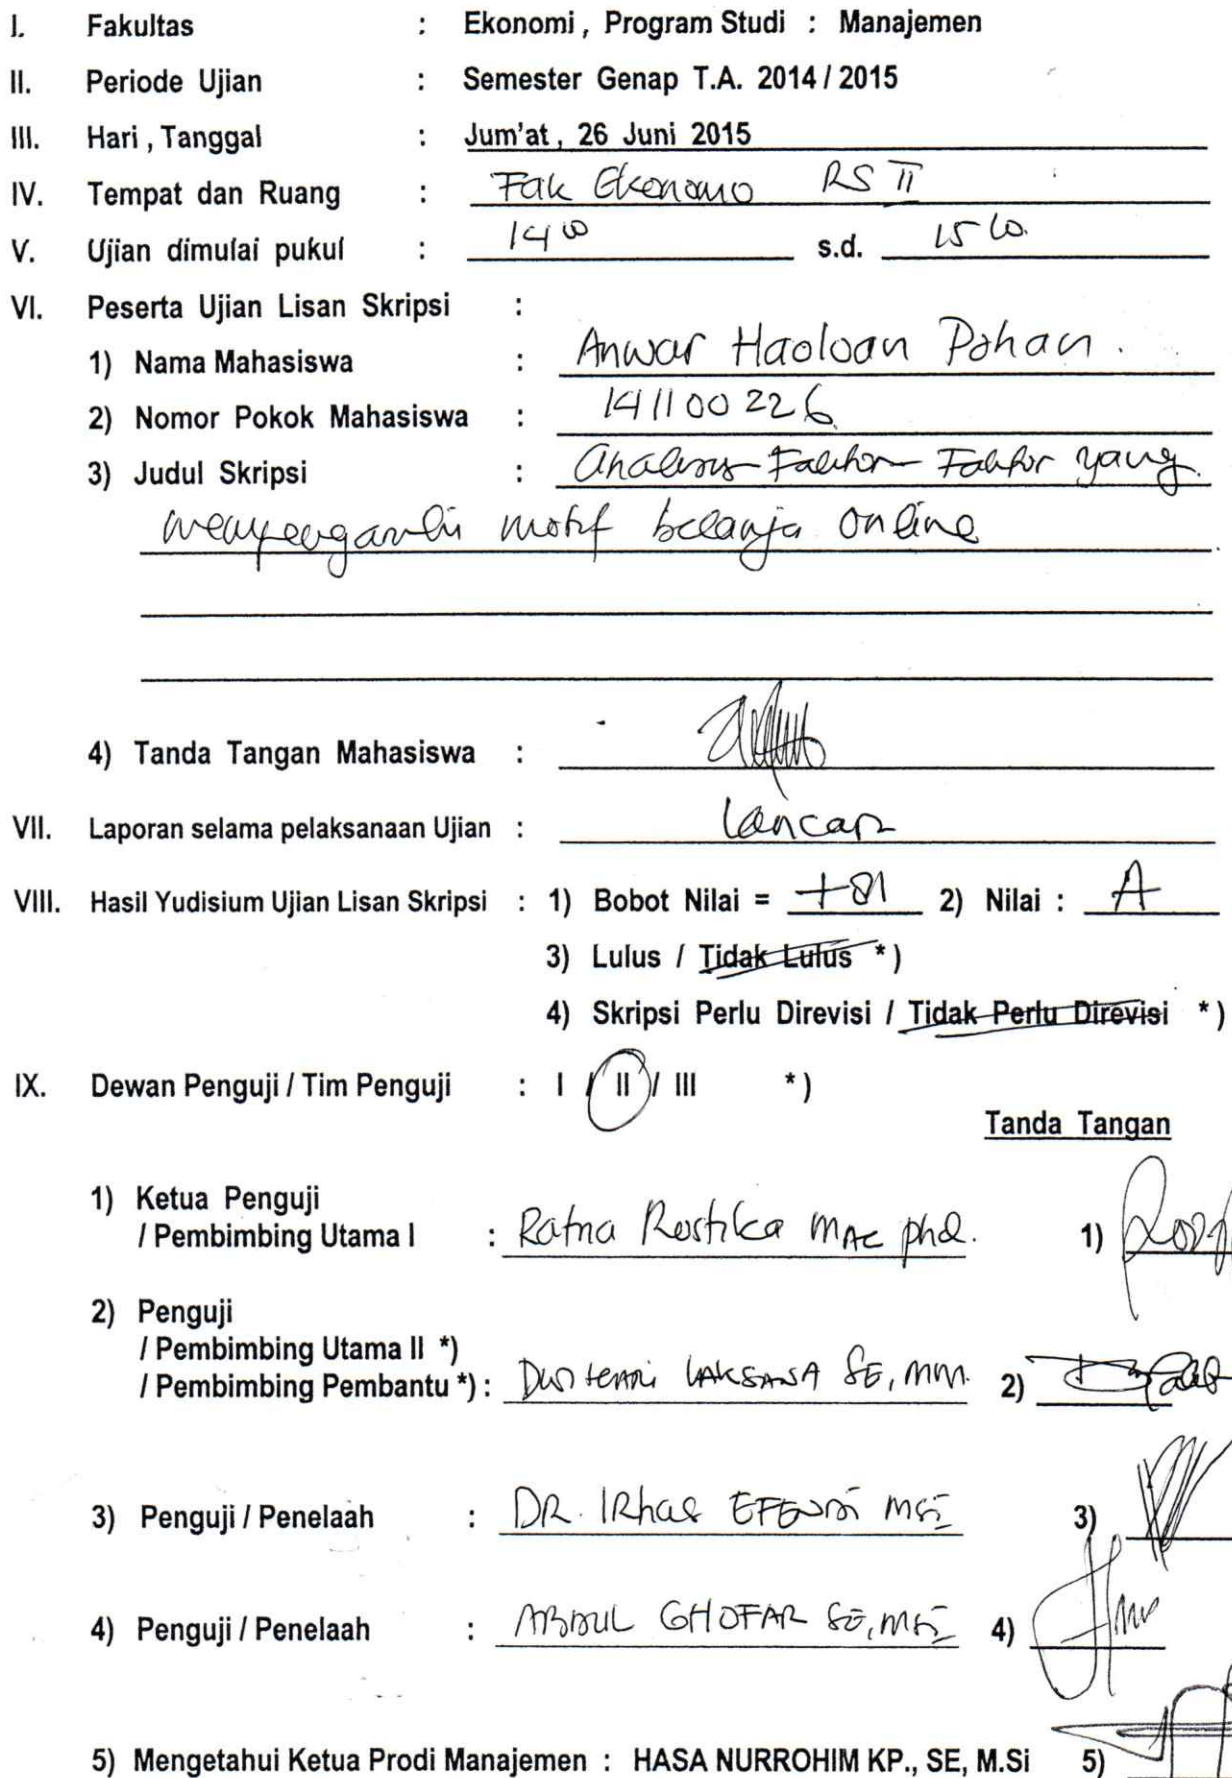 I. Fakultas : Ekonomi , Program Studi : Manajemen
II. Periode Ujian : Semester Genap T.A. 2014 / 2015
III. Hari , Tanggal : Jum'at , 26 Juni 2015
IV. Tempat dan Ruang : Fak Ekonomo RS II
V. Ujian dimulai pukul : 14 00 s.d. 15 00.
VI. Peserta Ujian Lisan Skripsi :
1) Nama Mahasiswa : Anwar Haoloan Pohan.
2) Nomor Pokok Mahasiswa : 141100226
3) Judul Skripsi : Analisis Faktor-Faktor yang
mempengaruhi motif belanja online
4) Tanda Tangan Mahasiswa :
VII. Laporan selama pelaksanaan Ujian : Lancar
VIII. Hasil Yudisium Ujian Lisan Skripsi : 1) Bobot Nilai = +81 2) Nilai : A
3) Lulus / Tidak Lulus *)
4) Skripsi Perlu Direvisi / Tidak Perlu Direvisi *)
IX. Dewan Penguji / Tim Penguji : I / II / III *)
Tanda Tangan
1) Ketua Penguji
/ Pembimbing Utama I : Ratna Rostika MAc phd. 1)
2) Penguji
/ Pembimbing Utama II *)
/ Pembimbing Pembantu *) : LAKSANA SE, MM. 2)
3) Penguji / Penelaah : DR. IRhas EFENDI MSi 3)
4) Penguji / Penelaah : ABDUL GHOFAR SE, MSi 4)
5) Mengetahui Ketua Prodi Manajemen : HASA NURROHIM KP., SE, M.Si 5)